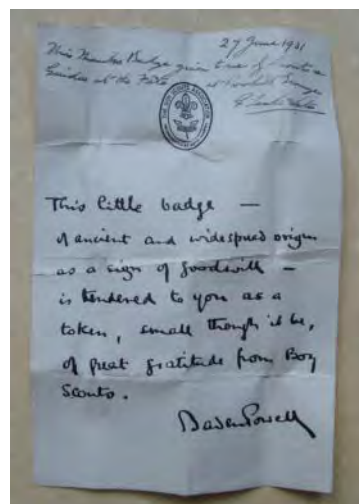 27 June 1931
This Thanks Badge given to me of Scouts &
Guides at the Fete
THE BOY SCOUTS ASSOCIATION
This little badge —
of ancient and widespread origin
as a sign of goodwill —
is tendered to you as a
token, small though it be,
of great gratitude from Boy
Scouts.
Baden Powell